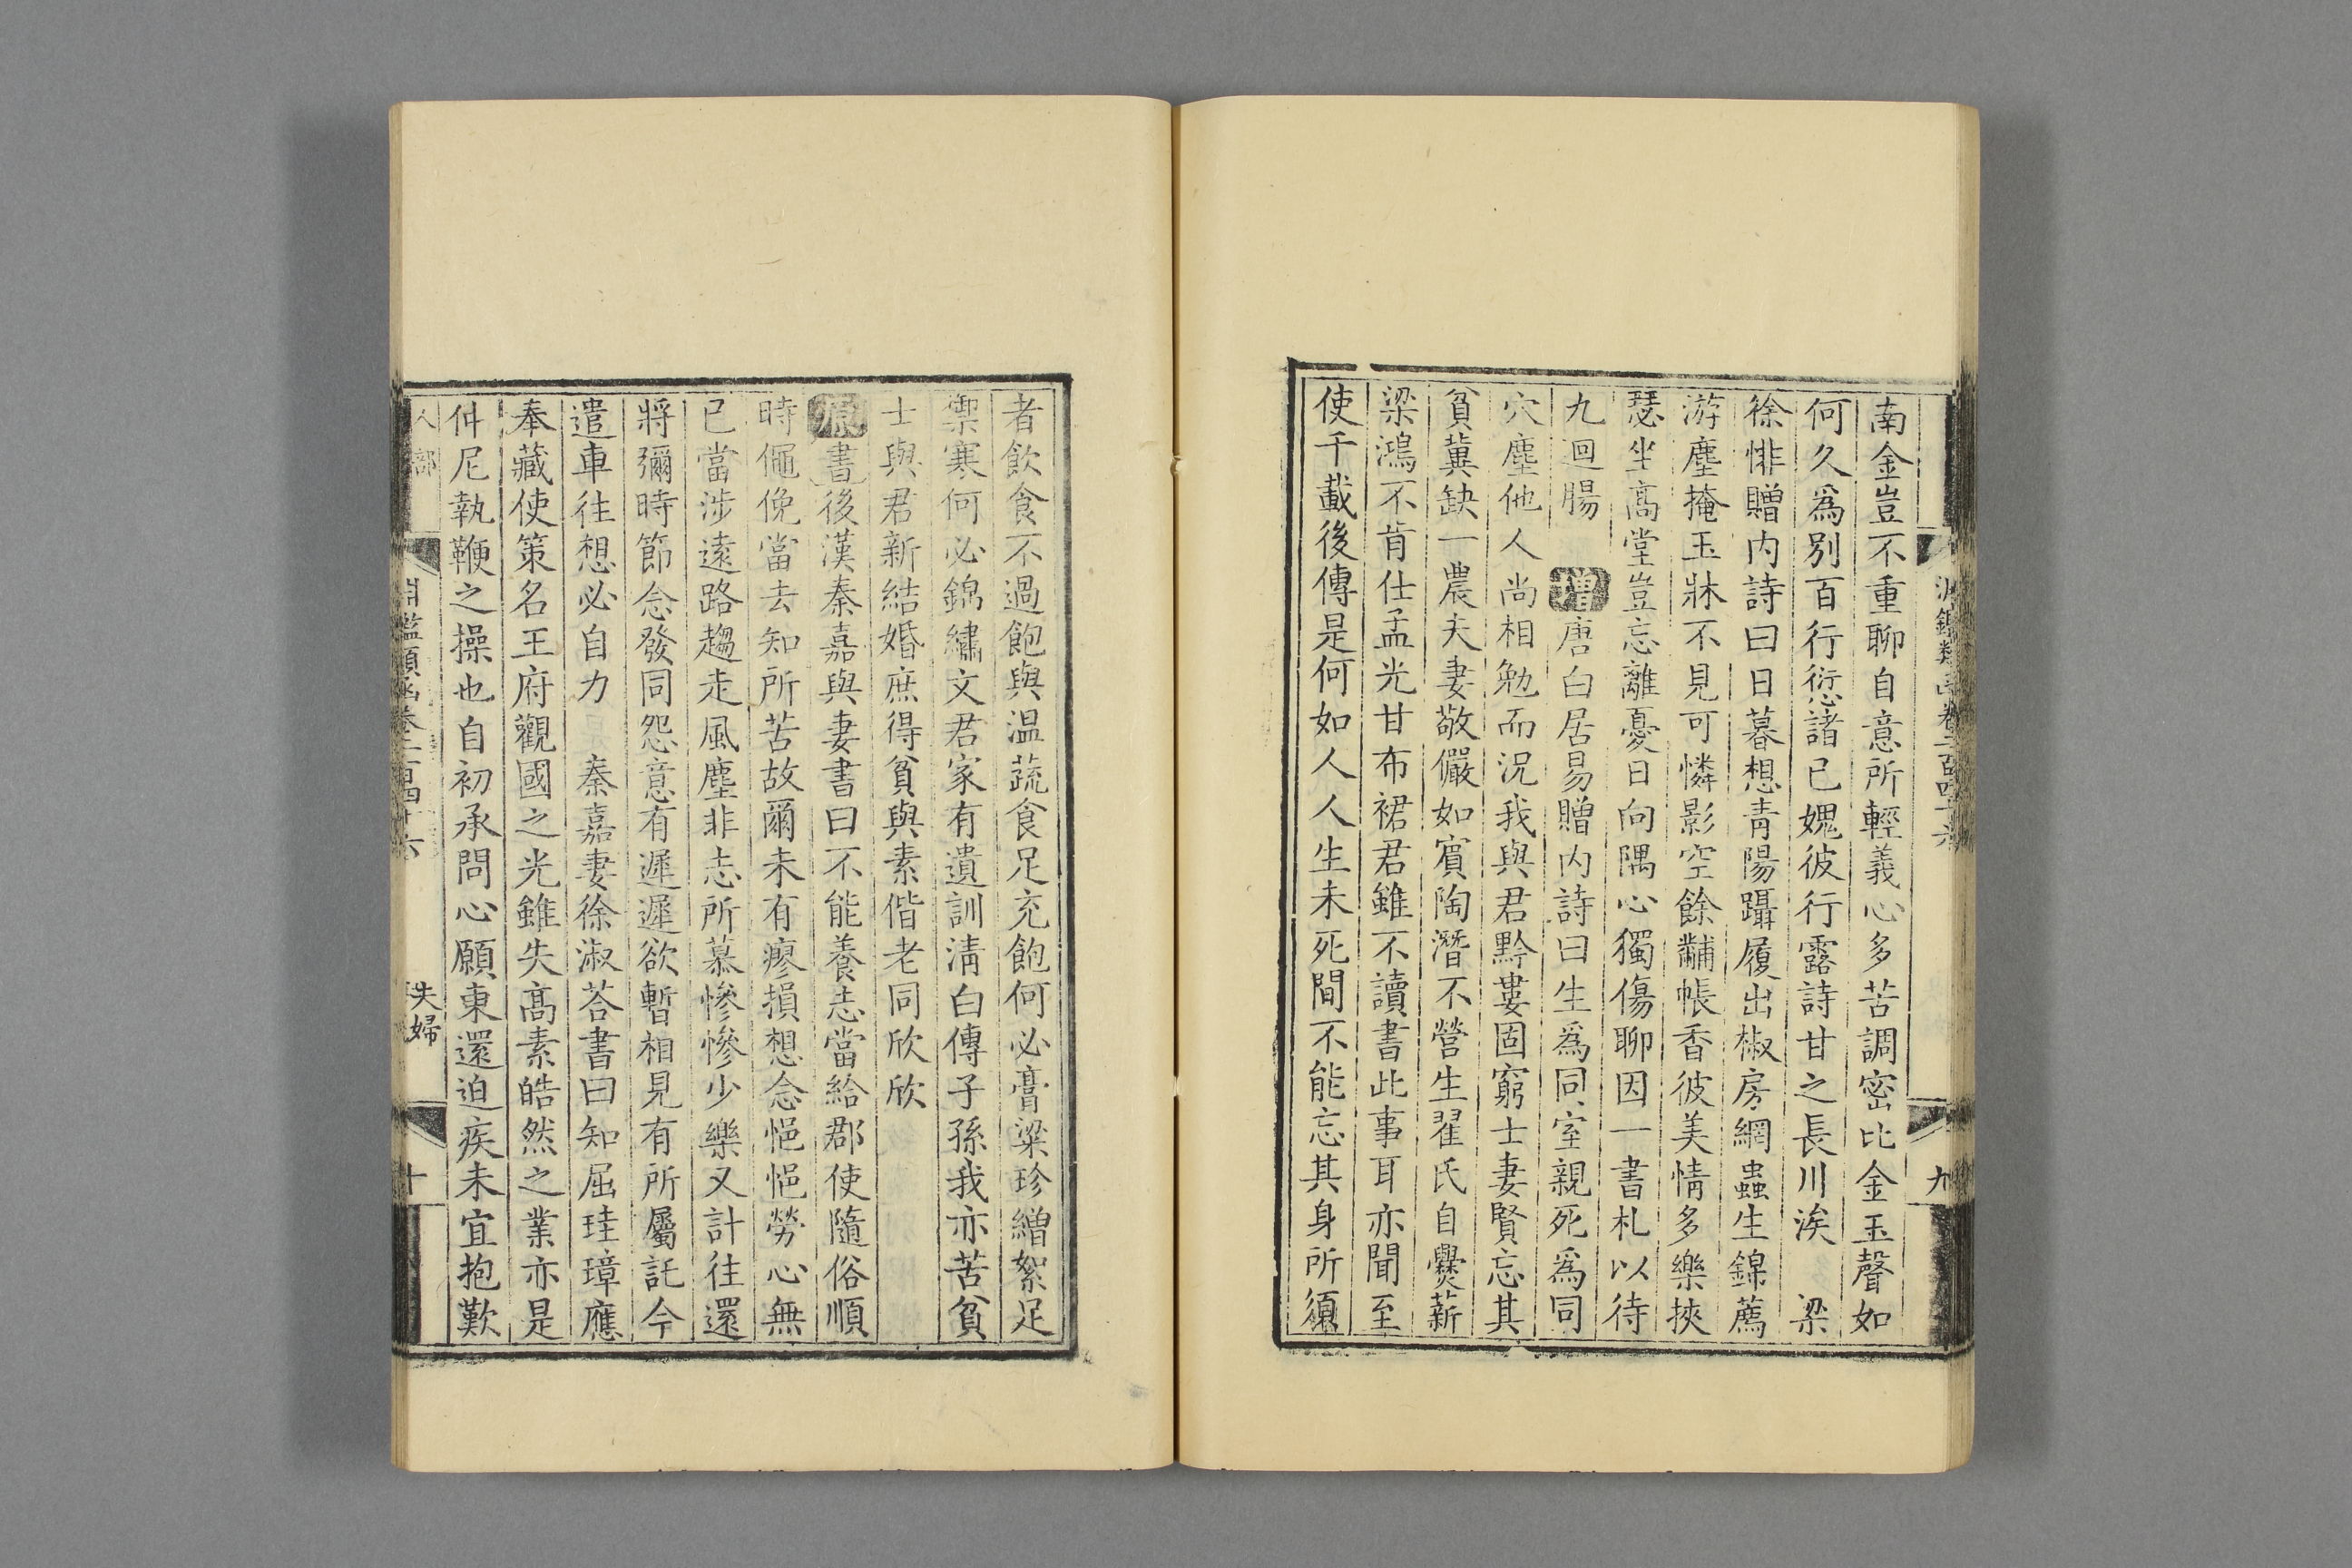 南金豈不重聊自意所輕義心多苦調密比金玉聲如
何久爲別百行愆諸已媿彼行露詩甘之長川涘 梁
徐悱贈内詩曰日暮想青陽躡履出椒房網蟲生錦薦
游塵掩玉牀不見可憐影空餘黼帳香彼美情多樂挾
瑟坐高堂豈忘離憂日向隅心獨傷聊因一書札以待
九迴腸 增唐白居易贈内詩曰生爲同室親死爲同
穴塵他人尚相勉而況我與君黔婁固窮士妻賢忘其
貧冀缺一農夫妻敬儼如賓陶潛不營生翟氏自爨薪
梁鴻不肯仕孟光甘布裙君雖不讀書此事耳亦聞至
使千載後傳是何如人人生未死間不能忘其身所須
者飲食不過飽與温蔬食足充飽何必膏粱珍繒絮足
禦寒何必錦繡文君家有遺訓清白傳子孫我亦苦貧
士與君新結婚庶得貧與素偕老同欣欣
原書後漢秦嘉與妻書曰不能養志當給郡使隨俗順
時僶俛當去知所苦故爾未有瘳損想念悒悒勞心無
已當涉遠路趨走風塵非志所慕慘慘少樂又計往還
將彌時節念發同怨意有遲遲欲暫相見有所屬託今
遣車往想必自力 秦嘉妻徐淑荅書曰知屈珪璋應
奉藏使策名王府觀國之光雖失高素皓然之業亦是
仲尼執鞭之操也自初承問心願東還迫疾未宜抱歎
人部
淵鑑類函卷二百四十六
夫婦
十